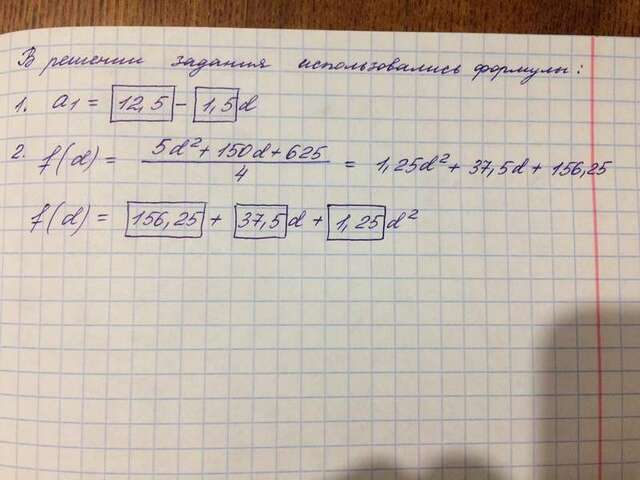 В решении задания использовались формулы:
1. a₁ = 12,5 - 1,5d
2. f(d) = (5d² + 150d + 625)/4 = 1,25d² + 37,5d + 156,25
f(d) = 156,25 + 37,5d + 1,25d²